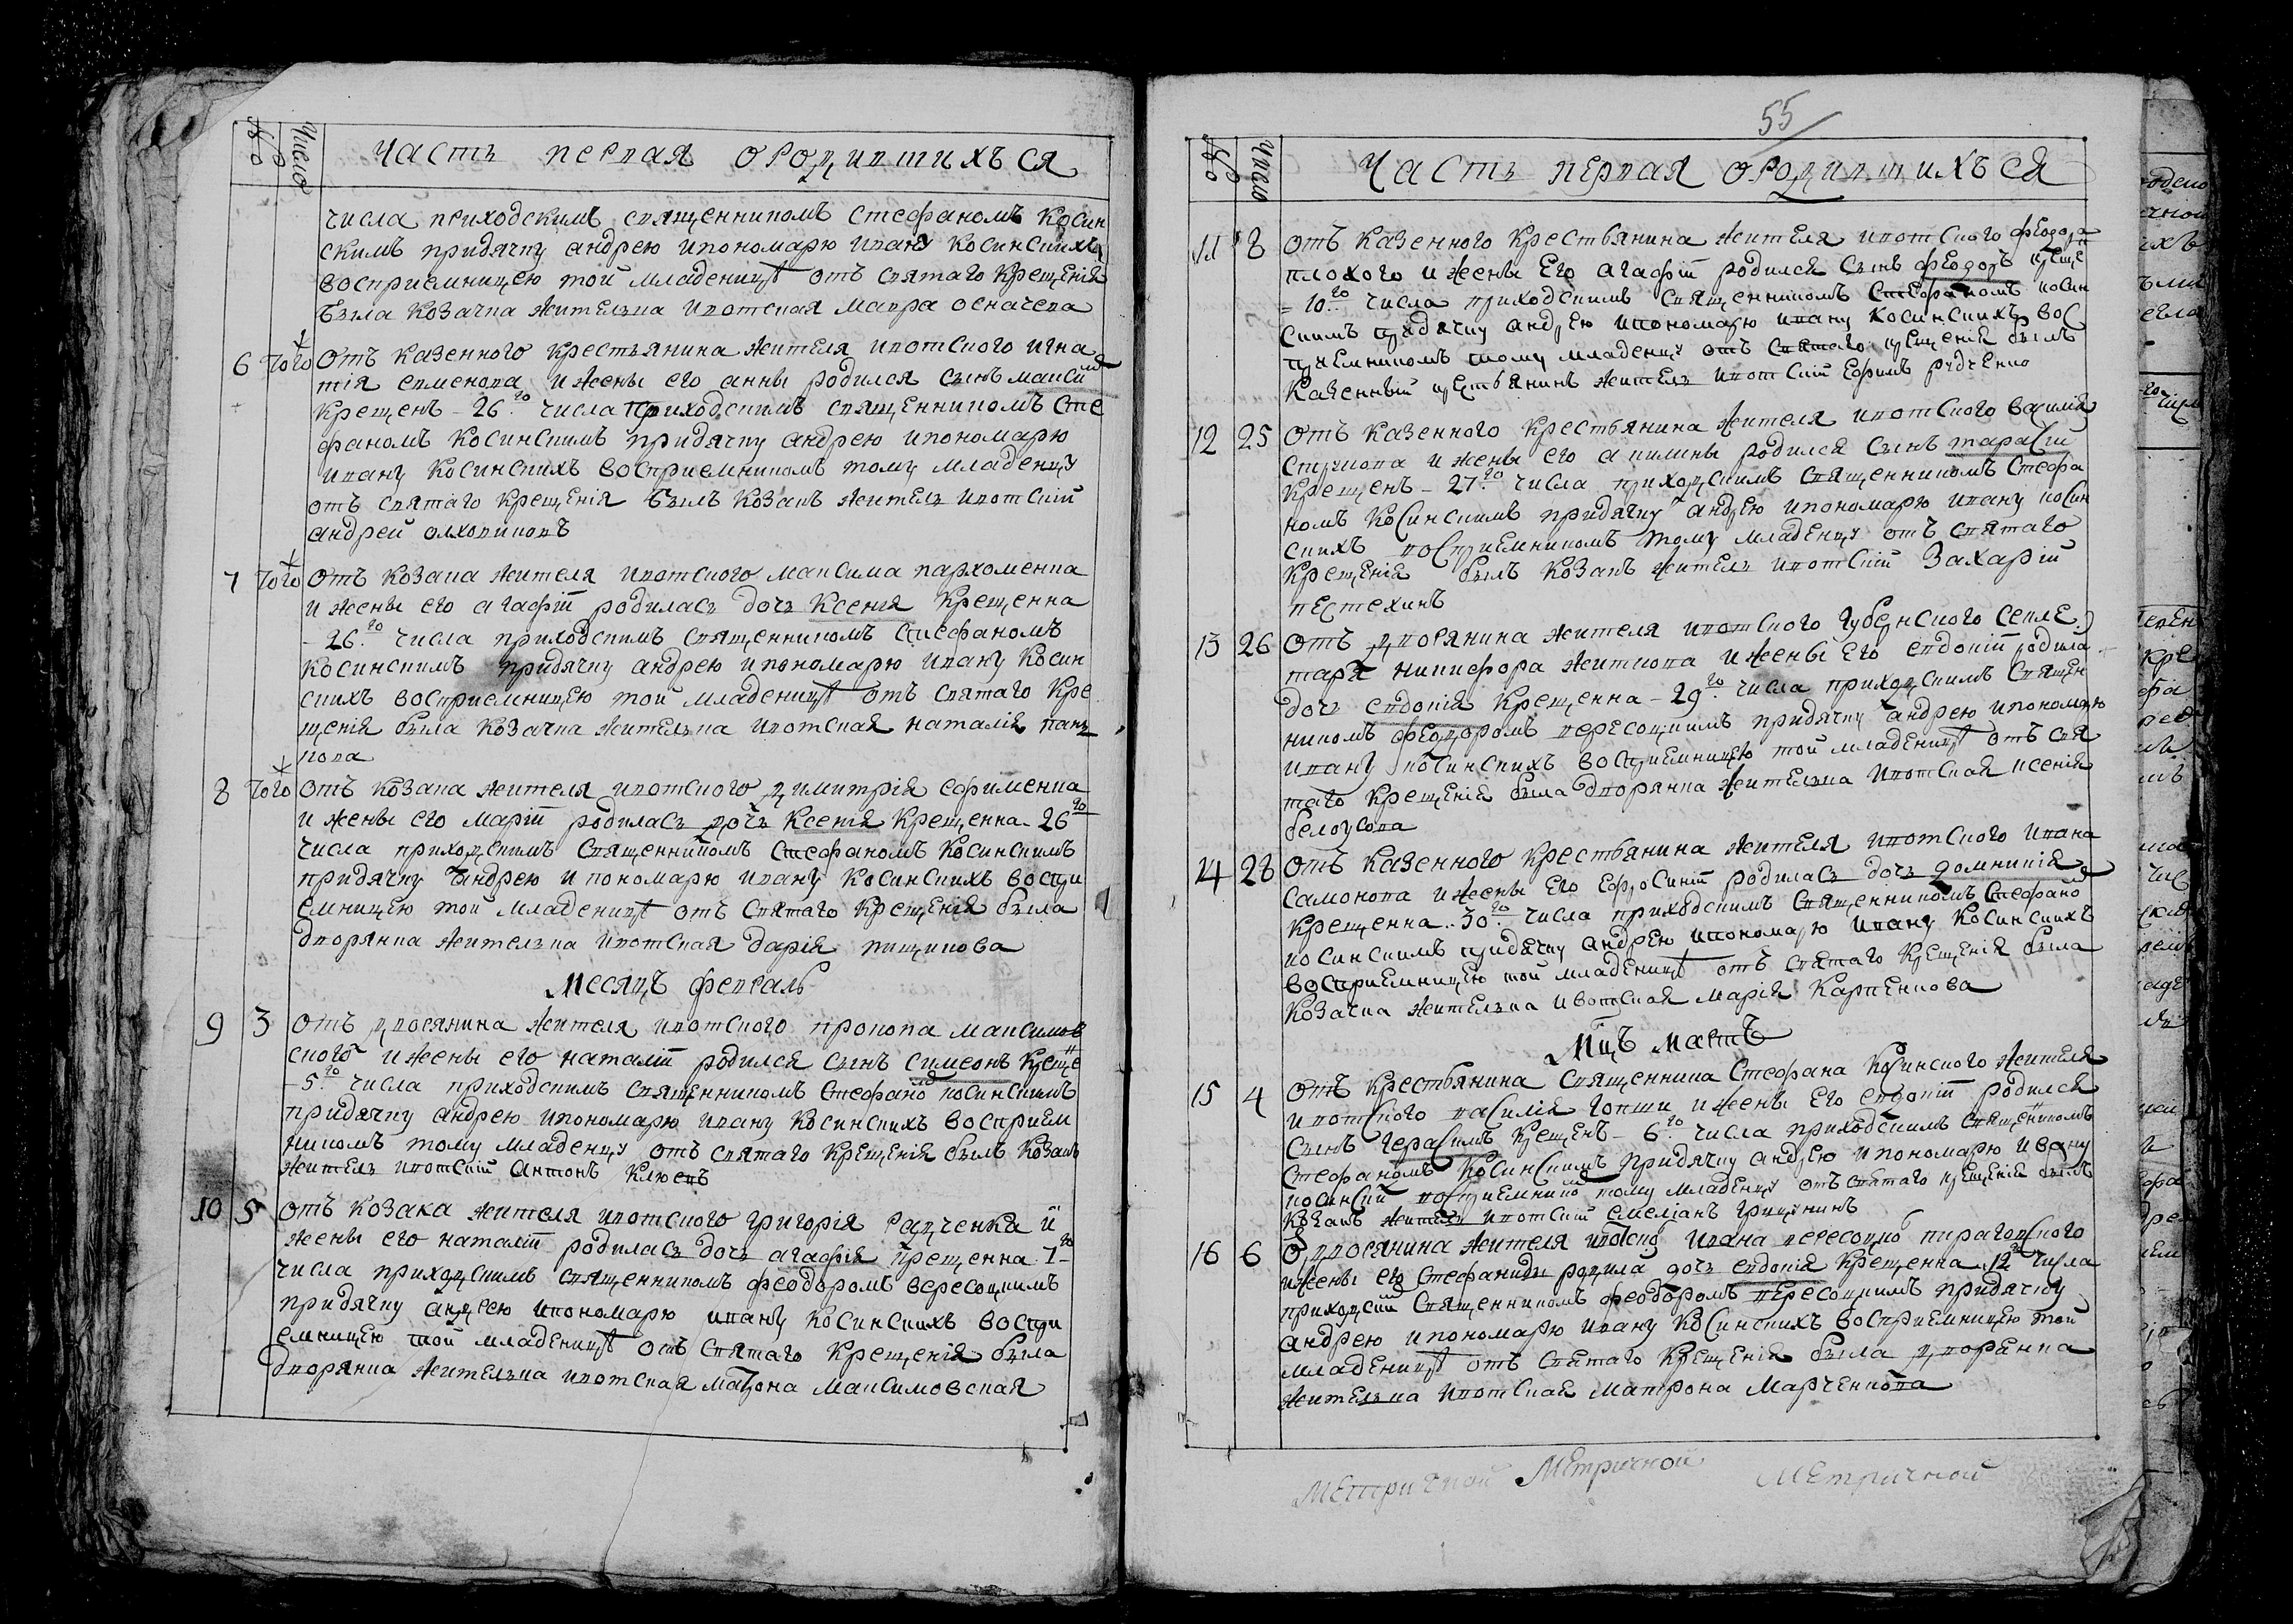 №
Число
Часть первая ородившихъся
числа приходскимъ священникомъ стефаномъ косин
скимъ придячку андрею ипономарю ивану косинскихъ
восприемницею той младеницѣ отъ святаго крещенія
была козачка жителька ивотская мавра осначева
6 того отъ казенного крестьянина жителя ивотского игна
тія семенова и жены его анны родился сынъ максимъ
крещенъ – 26го числа приходскимъ священникомъ сте
фаномъ косинскимъ придячку андрею ипономарю
ивану косинскихъ восприемникомъ тому младенцу
отъ святаго крещенія былъ козакъ житель ивотскій
андрей олховиковъ
7 того отъ козака жителя ивотского максима пархоменка
и жены его агафіи родилась дочь ксенія крещенна
– 26го числа приходскимъ священникомъ стефаномъ
косинскимъ придячку андрею ипономарю ивану косин
скихъ восприемницею той младеницѣ отъ святаго кре
щенія была козачка жителька ивотская наталія панъ
кова
8 того отъ козака жителя ивотского димитрія ефименка
и жены его маріи родилась дочь ксенія крещенна – 26го
числа приходскимъ священникомъ стефаномъ косинскимъ
придячку андрею ипономарю ивану косинскихъ воспри
емницею той младеницѣ отъ святаго крещенія была
дворянка жителька ивотская дарія пищикова
Месяцъ февраль
9 3 отъ дворянина жителя ивотского прокопа максимов
ского и жены его наталіи родился сынъ симеонъ креще
– 5го числа приходскимъ священникомъ стефаномъ косинскимъ
придячку андрею ипономарю ивану косинскихъ восприем
никомъ тому младенцу отъ святаго крещенія былъ козакъ
житель ивотскій антонъ клюевъ
10 5 отъ козака жителя ивотского григорія радченка и
жены его наталіи родилась дочь агафія крещенна – 7го
числа приходскимъ священникомъ феодоромъ вересоцкимъ
придячку андрею ипономарю ивану косинскихъ воспри
емницею той младеницѣ отъ святаго крещенія была
дворянка жителька ивотская матрона максимовская
55
№
Число
Часть первая ородившихъся
11 8 отъ казенного крестьянина жителя ивотского феодора
плохого и жены его агафіи родился сынъ феодоръ креще
= 10го числа приходскимъ священникомъ стефаномъ косин
скимъ придячку андрею ипономарю ивану косинскихъ вос
приемникомъ тому младенцу отъ святаго крещенія былъ
казенный крестьянинъ житель ивотскій ефимъ рудченко
12 25 отъ казенного крестьянина жителя ивотского василія
и жены его акилины родился сынъ тарасій
крещенъ – 27го числа приходскимъ священникомъ стефа
номъ косинскимъ придячку андрею ипономарю ивану косин
скихъ восприемникомъ тому младенцу отъ святаго
крещенія былъ козакъ житель ивотскій захарій
пестехинъ
13 26 отъ дворянина жителя ивотского губернского секре
таря никифора житкова и жены его евдокіи родила
дочь евдокія крещенна – 29го числа приходскимъ священ
никомъ феодоромъ вересоцкимъ придячку андрею ипономарю
ивану косинскихъ восприемницею той младеницѣ отъ свя
таго крещенія была дворянка жителька ивотская ксенія
белоусова
14 28 отъ казенного крестьянина жителя ивотского ивана
самонова и жены его ефросиніи родилась дочь домникія
крещенна – 30го числа приходскимъ священникомъ стефаномъ
косинскимъ придячку андрею ипономарю ивану косинскихъ
восприемницею той младеницѣ отъ святаго крещенія была
козачка жителька ивотская марія карпенкова
Мцъ мартъ
15 4 отъ крестьянина священника стефана косинского жителя
ивотского василія гопши и жены его евдокіи родился
сынъ герасимъ крещенъ – 6го числа приходскимъ священникомъ
стефаномъ косинскимъ придячку андрею ипономарю ивану
косинскій восприемником тому младенцу отъ святаго крещенія былъ
козакъ житель ивотскій емеліанъ грицунинъ
16 6 о дворянина жителя ивотско ивана вересоцко пирагожского
и жены его стефаниды родила дочь евдокія крещенна 12го числа
приходскій священникомъ феодоромъ вересоцкимъ придячку
андрею ипономарю ивану косинскихъ восприемницею той
младеницѣ отъ святаго крещенія была дворянка
жителька ивотская матрона марченкова
Метричной Метричной Метричной